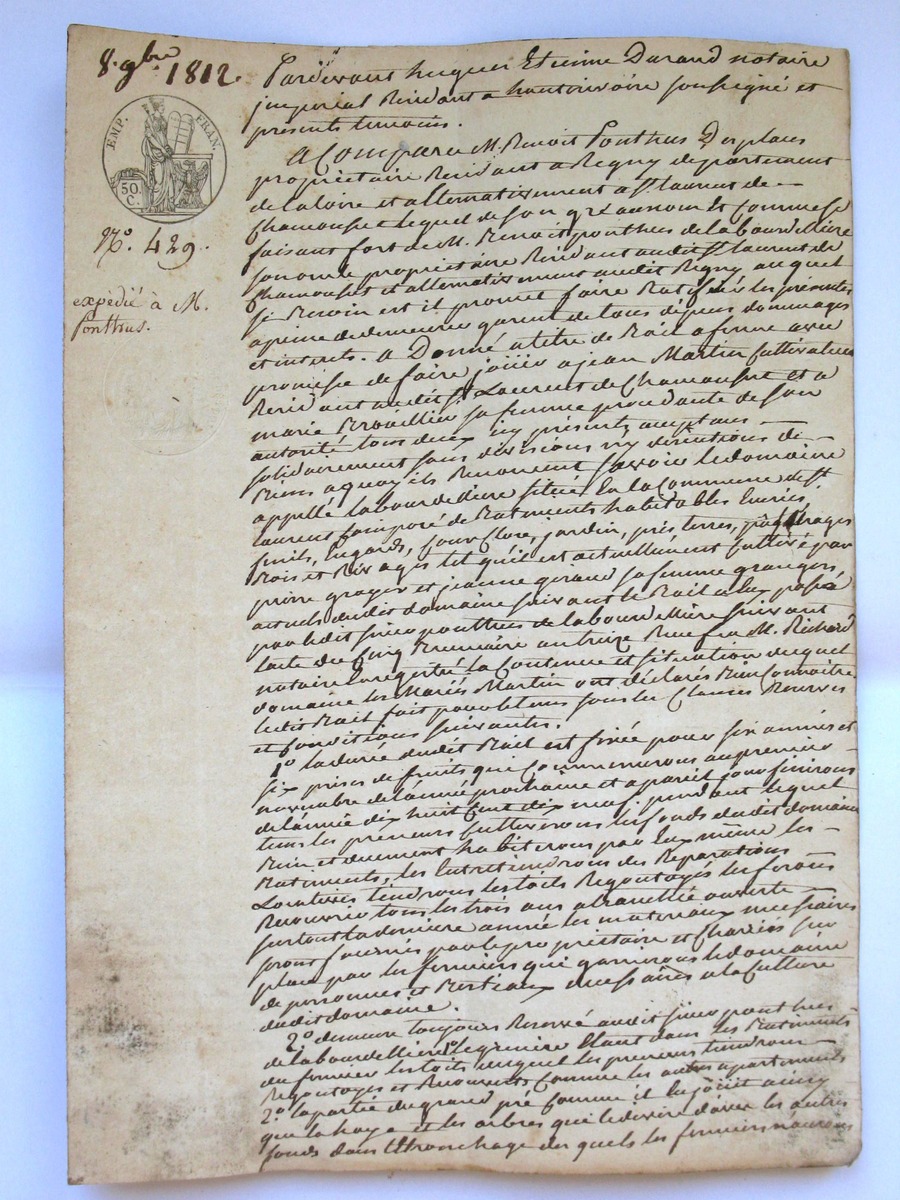 8. 9bre 1812.
EMP. FRAN.
50 C.
N.º 429.
expédié à M.
Ponthus.
Pardevant hugues Etienne Durand notaire
imperial Residant a hauterivoire soussigné et
presents temoins.
A Comparu M. Benoit Ponthus Desplaces
propriétaire Residant a Regny departement
de la loire et alternativement a St. laurent de
Chamousset lequel de son gré au nom Et Comme se
faisant fort de M. Benoit ponthus de labourdelliere
son oncle propriétaire Residant audit St. laurent de
Chamousset et alternativement audit Regny auquel
si Besoin est il promet faire Ratifier les présentes
a peine de demeurer garent de tous dépens dommages
et interets. a Donné a titre de Bail a ferme avec
promesse de faire joüir a jean Martin Cultivateur
Residant audit St. Laurent de Chamousset et a
marie Brouillier sa femme procedante de son
autorité tous deux icy présents acceptans
solidairement sans divisions ny discutions de
Biens a quoy ils Renoncent Savoir le domaine
appellé labourdeliere situé En la Commune de St.
laurent Composé de Batiments habitables Ecuries,
fenils, hegards, Cour Close, jardin, prés terres,
Bois et tel qu'il est actuellement Cultivé par
pierre et jeanne giraud sa femme grangers
actuels dudit domaine suivant le Bail a Eux passé
par ledit sieur ponthus de labourdelliere suivant
l'acte du Cinq Brumaire an treize Reçu M. Richard
notaire Enregistré la Contenue et situation duquel
domaine les Mariés Martin ont déclarés Bien Connoitre.
ledit Bail fait sous les Clauses Reserves
et Conditions suivantes.
1º la durée dudit Bail est fixée pour six années et
six prises de fruits qui Commenceront au premier
novembre de l'année prochaine et a pareil jour finiront
de l'année dix huit cent dix neuf. pendant lequel
tems les preneurs Cultiveront les fonds dudit domaine
Bien et duement habiteront par Eux même les
Batiments, les Entretiendront des Reparations
Locatives tiendront les toits Regoutoyés les feront
Recouvrir tous les trois ans a tranchée ouverte
surtout la derniere année les materiaux necessaires
seront fournis par le propriétaire et Chariés sur
place par les fermiers qui garniront le domaine
de personnes et Bestiaux necessaires a la Culture
dudit domaine.
2º demeure toujours Reservé audit sieur ponthus
de labourdelliere 1º le grenier Etant dans les Batiments
du fermier les toits duquel les preneurs tiendront
Regoutoyés et Recouverts Comme les autres apartements
2º la partie du grand pré Comme il En joüit ainsy
que la haye et les arbres qui le des autres
fonds dans l'Etronchage des quels les fermiers n'auront